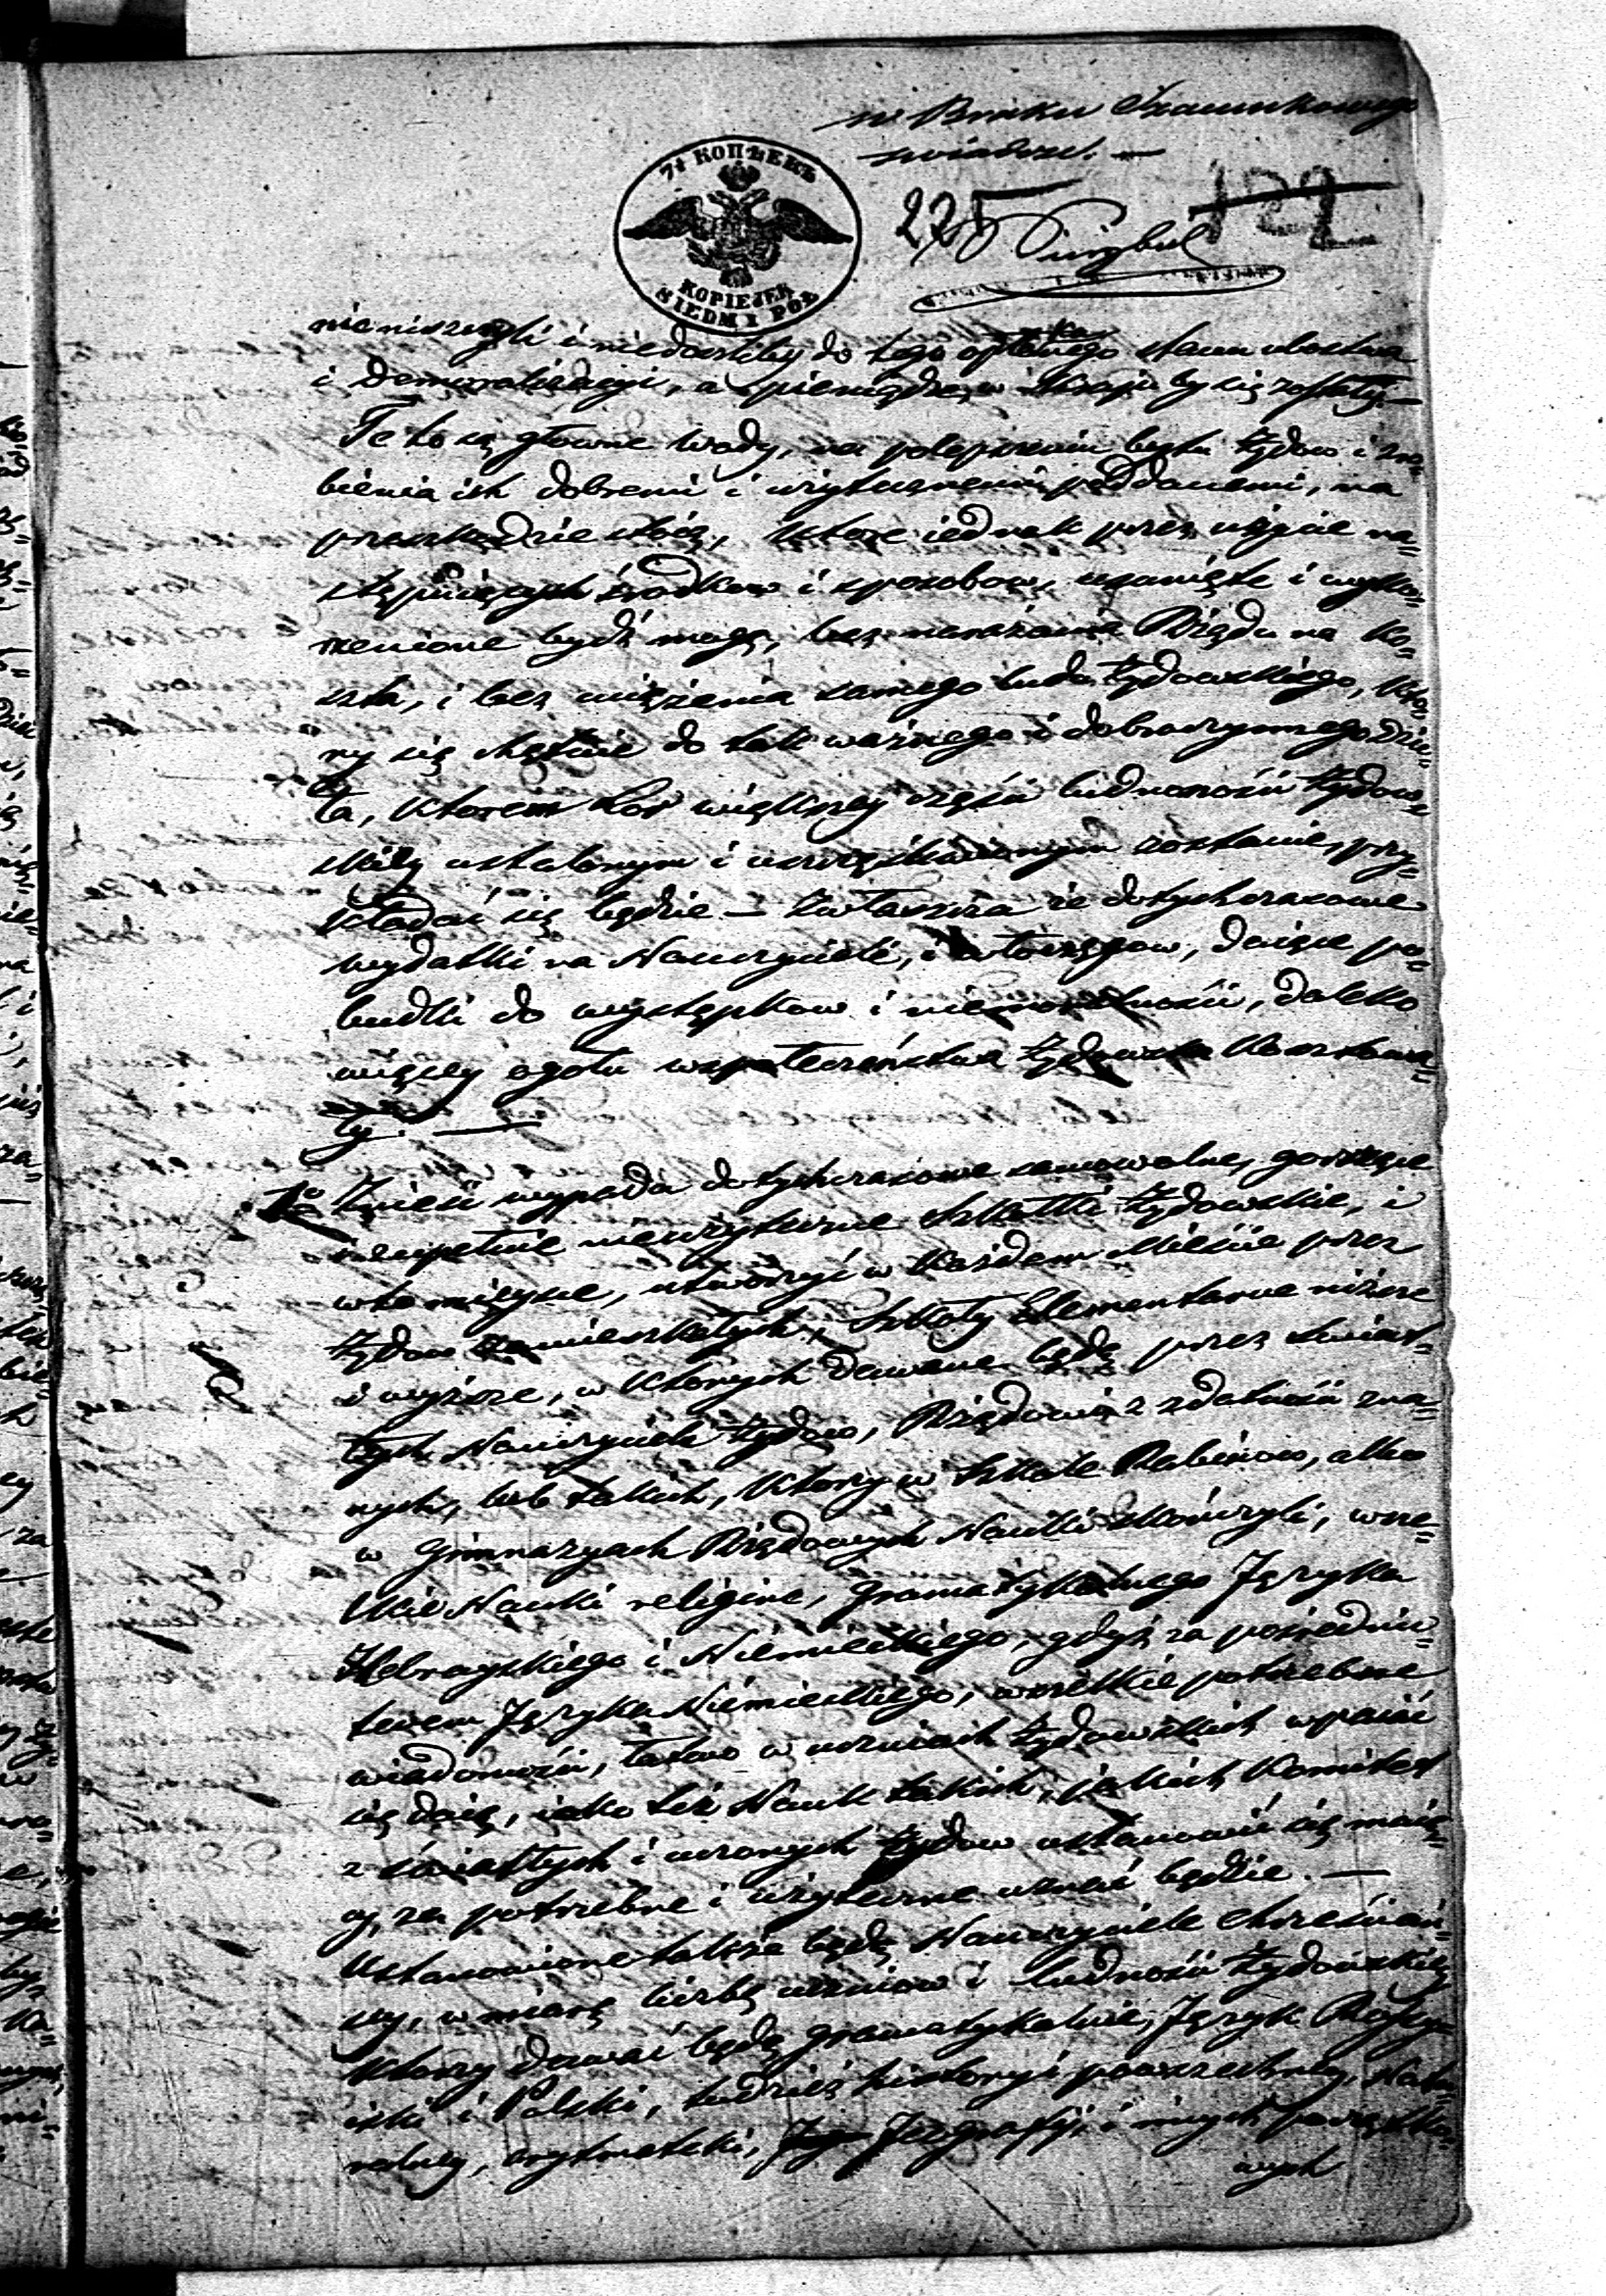 w Braku Szacunkowego
świadczę. —
7½ КОПѢЕКЪ
KOPIEJEK
SIEDM I PÓŁ
225
122
nie niszczyli i niedoszliby do tego opłakanego stanu ubóstwa
i demoralizacyi, a pieniądze w Kraju by się zostały. —
Te to są główne wady, na polepszeniu bytu żydów i zro=
bienia ich dobremi i użytecznemi poddanemi, na
przeszkodzie stoią, które iednak przez użycie na=
stępuiących środków i sposobów, usunięte i wyko=
rzenione bydź mogą, bez narażania Rządu na ko=
szta, i bez uciążenia samego ludu żydowskiego, któ=
ry się chętnie do tak ważnego i dobroczynnego dzie=
ła, którem los większey części ludności żydow=
skiéy ustalonym i uszczęśliwionym zostanie, przy=
kładać się będzie — zwłaszcza że dotychczasowe
wydatki na Nauczycieli, i włóczęgów, daiące po=
budki do występków i niemoralności, daleko
więcéy ogółu współeczeństwa żydowska kosztowa=
ły. —
1º Znieść wypada dotychczasowe samowolne, gorszące
i zupełnie nieużyteczne szkółki żydowskie, i
w to mieysce, utworzyć w każdem Mieście przez
żydów zamieszkałych, Szkoły Elementarne niższe
i wyższe, w których dawane będą przez świat=
łych Nauczycieli żydów, Rządowi z zdatności zna=
nych, lub takich, którzy w Szkole Rabinów, albo
w Gimnazyach Rządowych Nauki skończyli, wsze=
lkie Nauki religine, gramatykalnego Języka
Hebrayskiego i Niemieckiego, gdyż za pośrednic=
twem Języka Niemieckiego, wszelkie potrzebne
wiadomości, łatwo w uczniach żydowskich wpaiać
się daią, iako też Nauk takich, jakich Komitet
z światłych i uczonych żydów ustanowić się maią=
cy, za potrzebne i użyteczne uznać będzie. —
Ustanowione także będą Nauczyciele chrześciań=
scy, w miarę liczby uczniów i ludności żydowskiéy
którzy dawać będą gramatykalnie, Język Rossy=
iski i Polski, tudzież historyi powszechney, natu=
ralney, arytmetyki, Jeografji, i innych początko=
wych